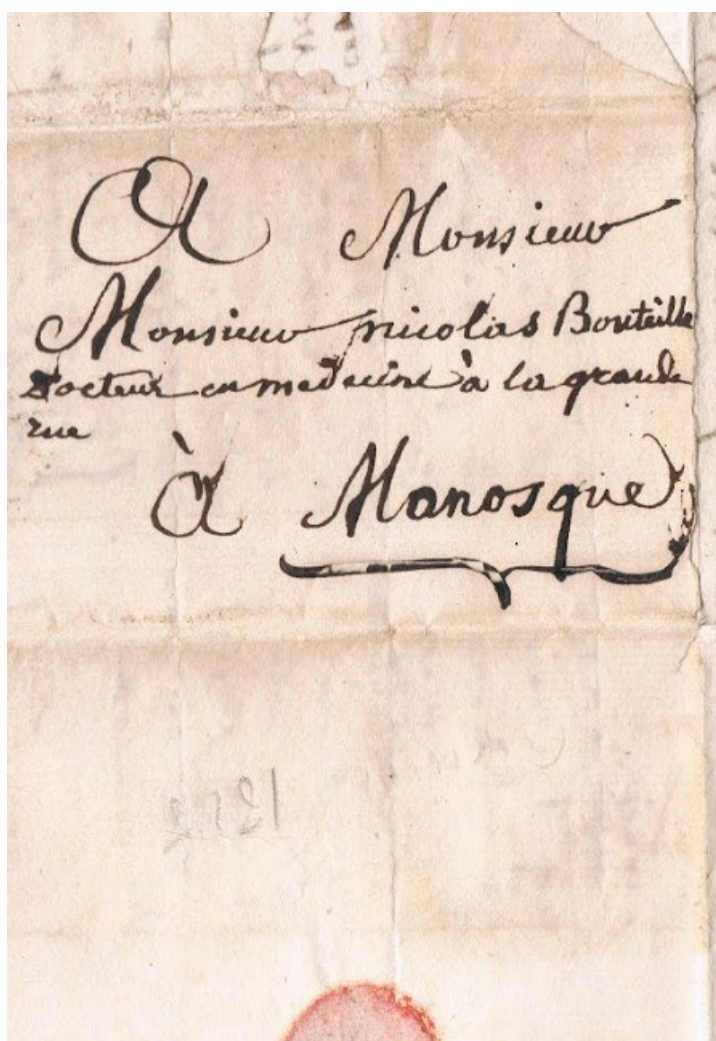 A Monsieur
Monsieur nicolas Bouteille
Docteur en medecine à la grande
rue
à Manosque